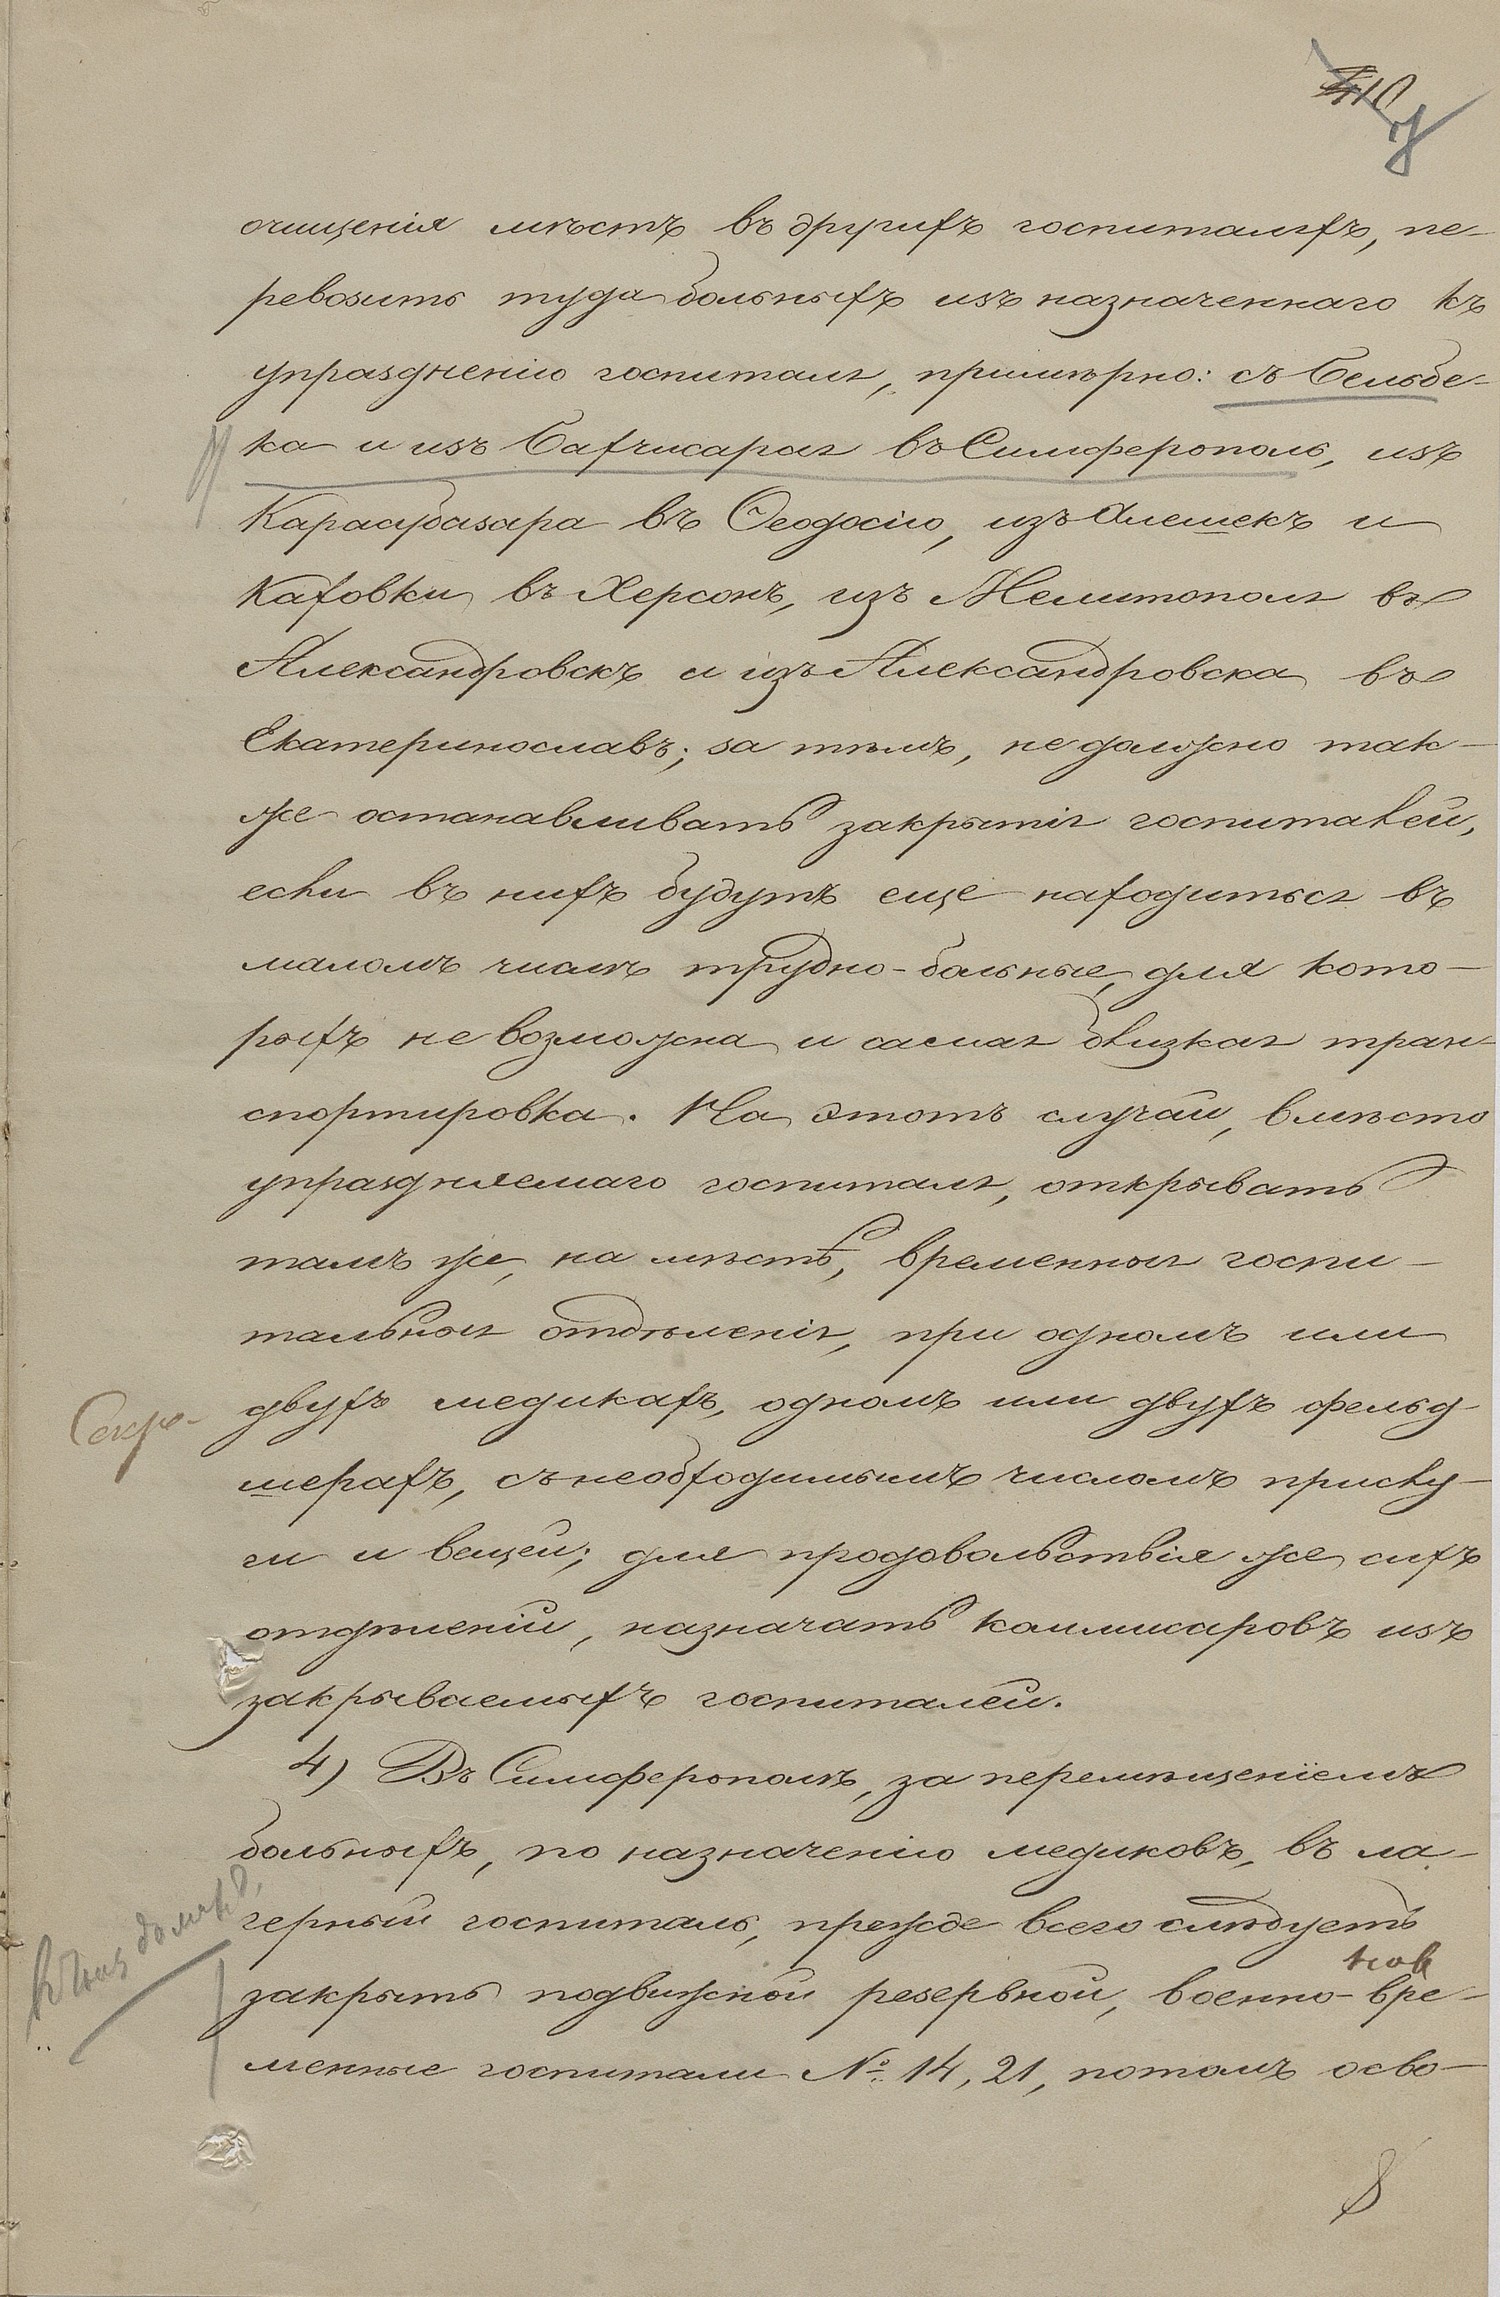 очищенія мѣстъ въ другихъ госпиталяхъ, пе-
ревозить туда больныхъ изъ назначеннаго къ
упраздненію госпиталя, примѣрно: съ Бельбе-
ка и изъ Бахчисарая въ Симферополь, изъ
Карасубазара въ Ѳеодосію, изъ Алешекъ и
Каховки въ Херсонъ, изъ Мелитополя въ
Александровскъ и изъ Александровска въ
Екатеринославъ; за тѣмъ, не должно так-
же останавливать закрытія госпиталей,
если въ нихъ будутъ еще находиться въ
маломъ числѣ трудно-больные, для кото-
рыхъ не возможна и самая близкая тран-
спортировка. На этотъ случай, вмѣсто
упраздняемаго госпиталя, открывать
тамъ же, на мѣстѣ, временныя госпи-
тальныя отдѣленія, при одномъ или
двухъ медикахъ, одномъ или двухъ фельд-
шерахъ, съ необходимымъ числомъ прислу-
ги и вещей; для продовольствія же сихъ
отдѣленій, назначать коммисаровъ изъ
закрываемыхъ госпиталей.
4) Въ Симферополѣ, за перемѣщеніемъ
больныхъ, по назначенію медиковъ, въ ла-
герный госпиталь, прежде всего слѣдуетъ
закрыть подвижной резервной, военно-вре-
менные госпитали № 14, 21, потомъ осво-
8